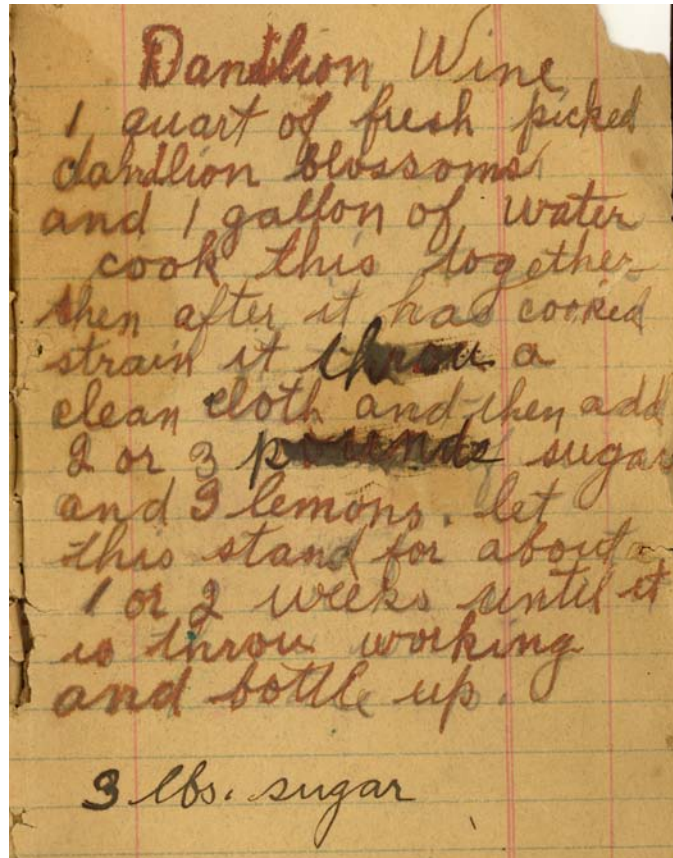 Dandlion Wine
1 quart of fresh picked
dandlion blossoms
and 1 gallon of water
cook this together
then after it has cooked
strain it throu a
clean cloth and then add
2 or 3 pounds sugar
and 3 lemons. let
this stand for about
1 or 2 weeks until it
is throu working
and bottle up.
3 lbs. sugar